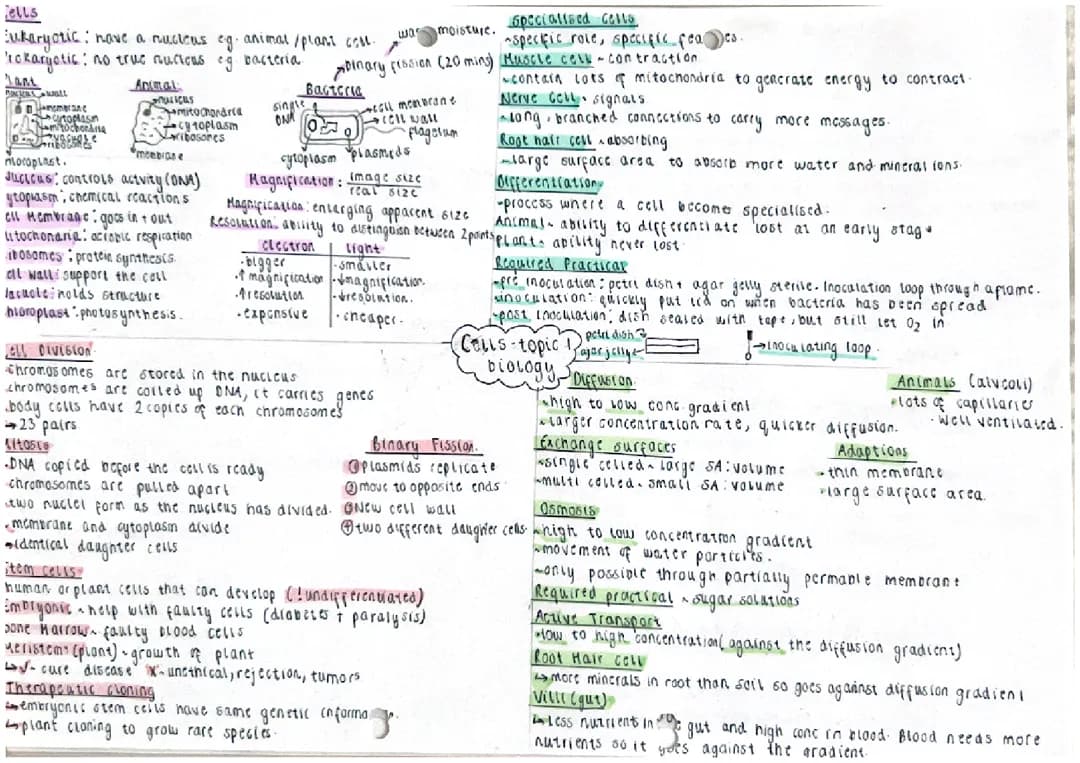 Cells
Eukaryotic: have a nucleus eg. animal/plant cell.
Prokaryotic: no true nucleus eg bacteria
moisture.
binary fission (20 mins)
Plant
wall
membrane
cytoplasm
mitochondria
vacuole
ribosomes
chloroplast.
Animal:
nucleus
mitochondria
cytoplasm
ribosomes
membrane
Bacteria
single DNA
cell membrane
cell wall
flagellum
cytoplasm
plasmids
Nucleus: controls activity (DNA)
cytoplasm: chemical reactions
cell Membrane: goes in + out
Mitochondria: aerobic respiration
ribosomes: protein synthesis.
cell wall: support the cell
Vacuole: holds structure
chloroplast: photosynthesis.
Magnification: image size
real size
Magnification: enlarging apparent size
Resolution: ability to distinguish between 2 points
electron
light
·bigger
·smaller
·↑magnification
·↓magnification.
·↑resolution
·↓resolution.
·expensive
·cheaper.
Specialised Cells
~specific role, specific
Muscle cell ~ contraction
~contain lots of mitochondria to generate energy to contract.
Nerve Cell · signals
~long, branched connections to carry more messages.
Root hair cell ~ absorbing
~large surface area to absorb more water and mineral ions.
Differentiation
~process where a cell become specialised.
Animal ~ ability to differentiate lost at an early stage
Plant ~ ability never lost.
Required Practical
~pre inoculation: petri dish + agar jelly sterile. Inoculation loop through a flame.
~inoculation: quickly put lid on when bacteria has been spread
~post inoculation: dish sealed with tape, but still let O2 in
petri dish
agar jelly
→inoculating loop.
Cells - topic 1
biology
Cell Division
chromosomes are stored in the nucleus
chromosomes are coiled up DNA, it carries genes
body cells have 2 copies of each chromosomes
→ 23 pairs.
Mitosis
·DNA copied before the cell is ready
·chromosomes are pulled apart
·two nuclei form as the nucleus has divided.
·membrane and cytoplasm divide
→identical daughter cells
Binary Fission.
①plasmids replicate
②move to opposite ends
③New cell wall
④two different daughter cells.
Stem Cells
human or plant cells that can develop (!undifferentiated)
Embryonic ~ help with faulty cells (diabetes + paralysis)
Bone Marrow ~ faulty blood cells
Meristems (plant) ~ growth of plant
↳✓~ cure disease x~ unethical, rejection, tumors
Therapeutic cloning
↳embryonic stem cells have same genetic
↳plant cloning to grow rare species.
Diffusion
~high to low conc. gradient
~larger concentration rate, quicker diffusion.
Animals (alveoli)
·lots of capillaries
·well ventilated.
Exchange surfaces
~single celled ~ large SA: volume
~multi celled ~ small SA: volume
Adaptions
·thin membrane
·large surface area.
Osmosis
~high to low concentration gradient
~movement of water particles.
~only possible through partially permable membrane
Required practical ~ sugar solutions
Active Transport
~low to high concentration (against the diffusion gradient)
Root Hair Cell
↳more minerals in root than soil so goes against diffusion gradient
Villi (gut)
↳less nutrient in gut and high conc in blood. Blood needs more
nutrients so it goes against the gradient.